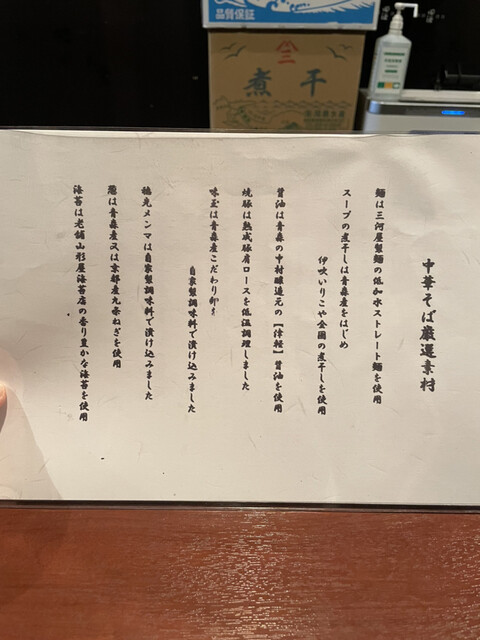 品質保証
三
煮干
中華そば厳選素材
麺は三河屋製麺の低加水ストレート麺を使用
スープの煮干しは青森産をはじめ
伊吹いりこや全国の煮干しを使用
醤油は青森の中村醸造元の【津軽】醤油を使用
焼豚は熟成豚肩ロースを低温調理しました
味玉は青森産こだわり卵を
自家製調味料で漬け込みました
穂先メンマは自家製調味料で漬け込みました
葱は青森産又は京都産九条ねぎを使用
海苔は老舗山形屋海苔店の香り豊かな海苔を使用